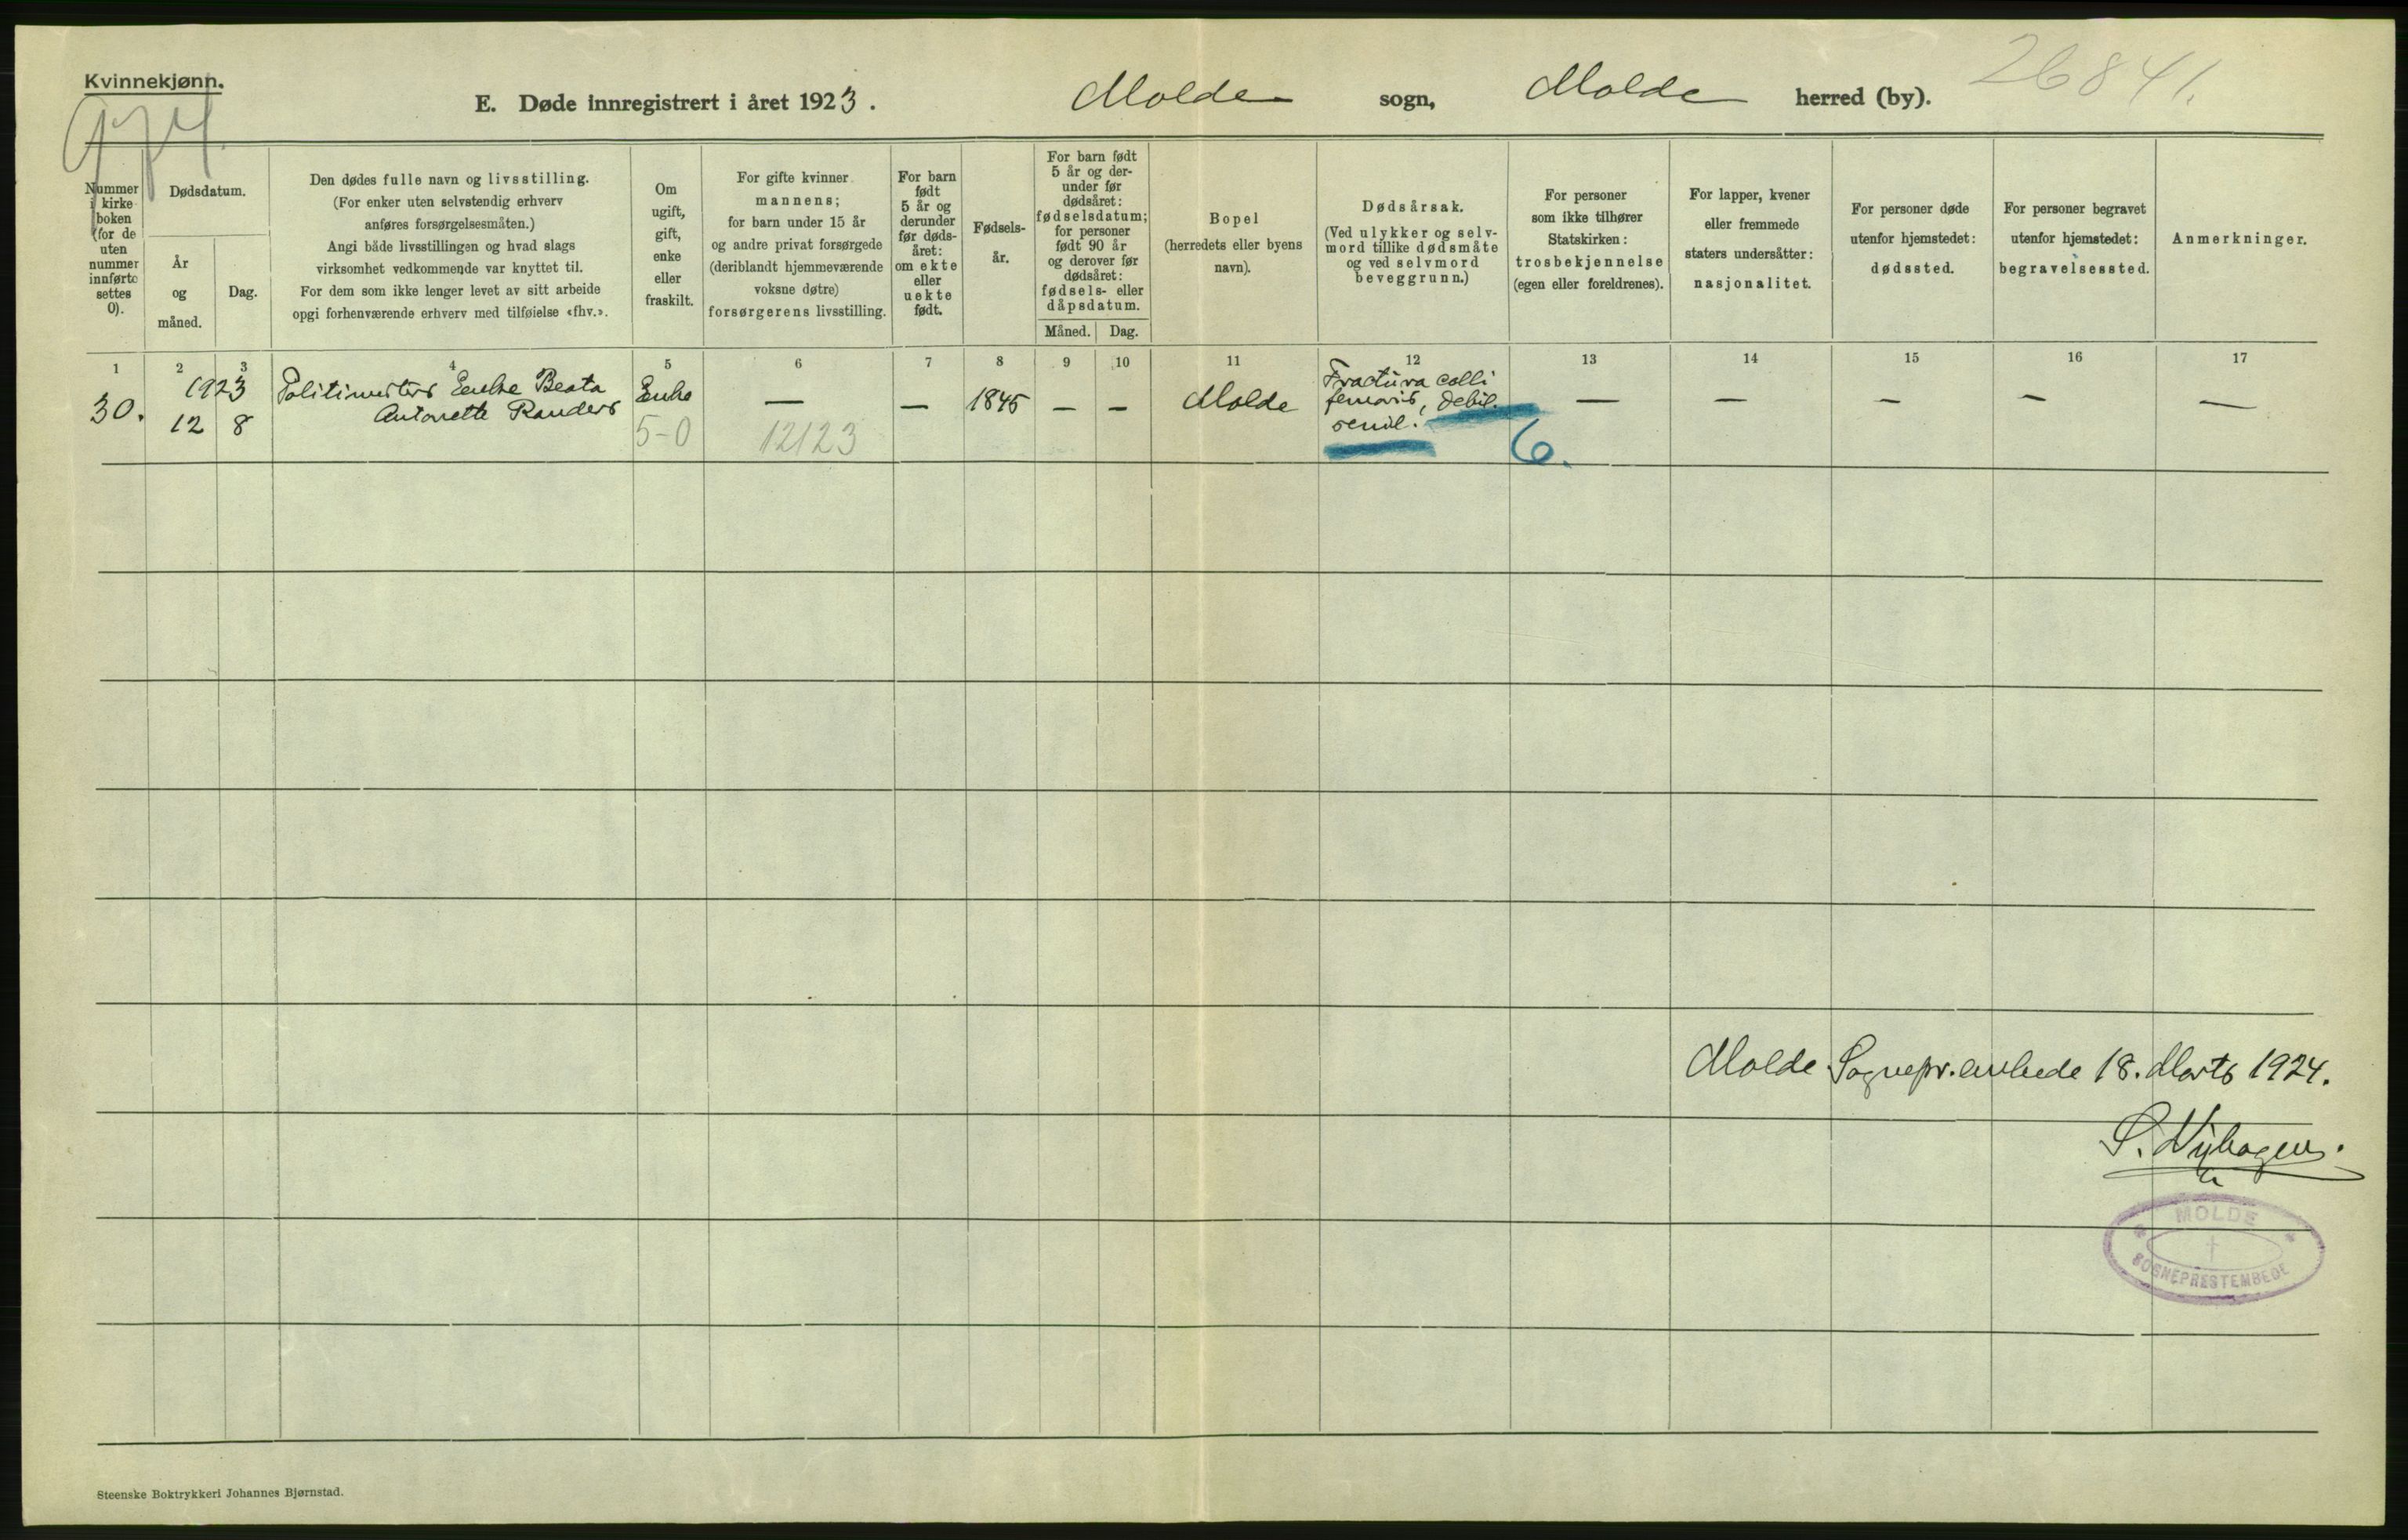 Kvinnekjønn.
974.
E. Døde innregistrert i året 1923.
Molde sogn, Molde herred (by).
26841.
Nummer
i kirke
boken
(for de
uten
nummer
innførte
settes
0).
Dødsdatum.
År
og
måned.
Dag.
Den dødes fulle navn og livsstilling.
(For enker uten selvstendig erhverv
anføres forsørgelsesmåten.)
Angi både livsstillingen og hvad slags
virksomhet vedkommende var knyttet til.
For dem som ikke lenger levet av sitt arbeide
opgi forhenværende erhverv med tilføielse «fhv.».
Om
ugift,
gift,
enke
eller
fraskilt.
For gifte kvinner
mannens;
for barn under 15 år
og andre privat forsørgede
(deriblandt hjemmeværende
voksne døtre)
forsørgerens livsstilling.
For barn
født
5 år og
derunder
før døds-
året:
om ekte
eller
uekte
født.
Fødsels-
år.
For barn født
5 år og der-
under før
dødsåret:
fødselsdatum;
for personer
født 90 år
og derover før
dødsåret:
fødsels- eller
dåpsdatum.
Måned. Dag.
Bopel
(herredets eller byens
navn).
Dødsårsak.
(Ved ulykker og selv-
mord tillike dødsmåte
og ved selvmord
beveggrunn.)
For personer
som ikke tilhører
Statskirken:
trosbekjennelse
(egen eller foreldrenes).
For lapper, kvener
eller fremmede
staters undersåtter:
nasjonalitet.
For personer døde
utenfor hjemstedet:
dødssted.
For personer begravet
utenfor hjemstedet:
begravelsessted.
Anmerkninger.
1 2 3 4 5 6 7 8 9 10 11 12 13 14 15 16 17
30.
1923
12 8
Politimesters Enke Beata
Antonette Randers
Enke
5-0
—
12123
—
1845
— —
Molde
Fractura colli
femoris, debil.
senil.
6.
— — — — —
Molde Sognepr.embede 18. Marts 1924.
MOLDE
SOGNEPRESTEMBEDE
Steenske Boktrykkeri Johannes Bjørnstad.